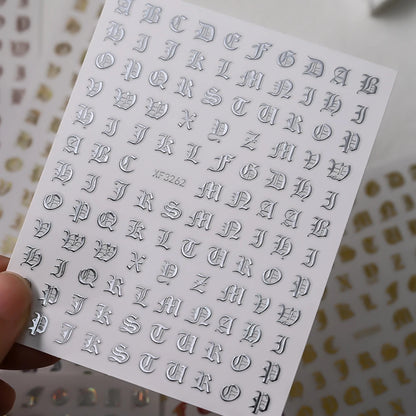 A B C D E F G D A B
H I J K L M N I H I
O P Q R S T U R O P
V W W X Y Z M V W
H I J K L F G D H I
A B C XF3262 M N A A B
H I J R S M N I H I
O P Q K L T U R O P
V W W X Y Z M V W
H I Q R L M N A H I
P J K S T U R O P